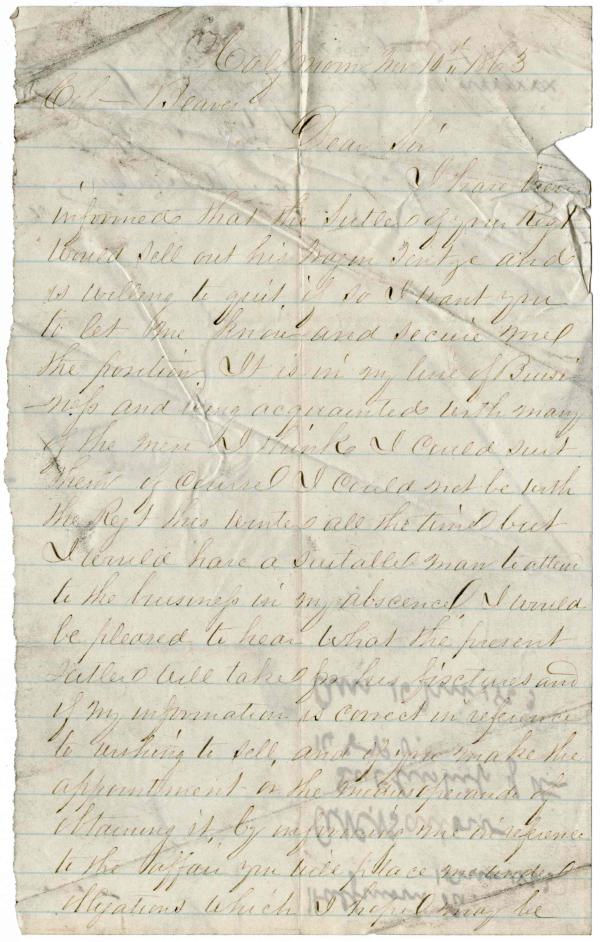 10th 1863
Col — Beaver
Dear Sir
I have been
informed that the Sutler of your Regt
would sell out his Wagon Tent &c and
is willing to quit if so I want you
to let me know and secure me
the position. It is in my line of Buisi
ness and being acquainted with many
of the men I think I could suit
them of course I could not be with
the Regt this winter all the time but
I would have a suitable man to attend
to the buisiness in my abscence I would
be pleased to hear what the present
Sutler will take for his fixctures and
if my information is correct in reference
to wishing to sell, and if you make the
appointment or the modus operandi of
obtaining it, by informing me in reference
to the affair you will place me under
obligations which I hope may be